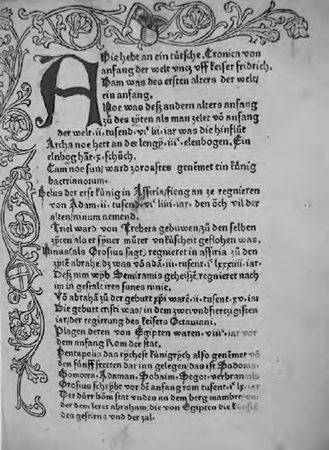 Die hebt an ein tütsche Cronica von
anfang der welt uncz uff keiser fridrich.
Dam was des ersten alters der welt
ein anfang.
Noe was desz andern alters anfang
zů des zyten als man zelet vō anfang
der welt .ii. tusend .vi. liii iar was die hinflüt
Archa noe hett an der lengy .iii. elenbogen. Ein
elnbog hat .x. schůch.
Cam noe sun ward zoroastes genēmet ein künig
bactrianorum.
Belus der erst künig in Assiria fieng an ze regnieren
von Adam .ii. tusend iar den och vil der
alten ninum nemend.
Triel ward von Trebeta gebuwen zů den selben
zyten als er syner můter unküscheit geflohen was.
Ninus als Orosius sagt regnieret in assiria zů den
zyten abrahe dz was vō adā .iii. tusend .i. lxxxiiii. iar
Desz nim wyb Semiramis geheissz regnieret nach
im in gestalt ires sunes ninie.
Vō abrahā zů der geburt xpi warē .ii. tusent .xv. iar
Die geburt cristi was in dem zwei und fierzigisten
iar der regierung des keisers Octaviani.
Plagen deren von Egipten waren .viii. iar vor
dem anfang Rom der stat.
Pentapolis das rychest künigrych also genēmet vō
den fünff stetten dar inn gelegen das ist Sodoma
Gomorra Adaman Soboim Segor verbran als
Orosius schrybt vor dē anfang rom tusent .i. lx. iar
Der dürr böm stat unden an dem berg mambre
der dem leret abraham die von Egipten die
des gestirns und der zal.